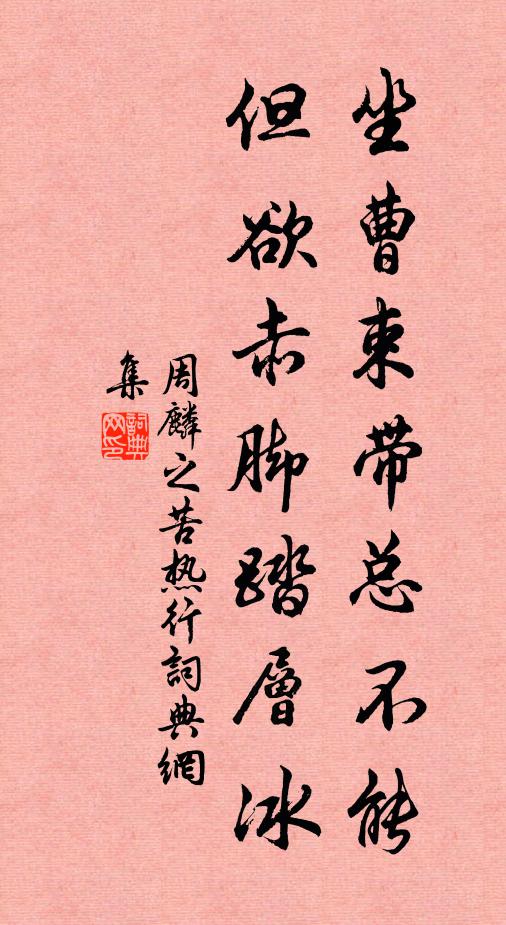 坐曹束带总不能
但欲赤脚踏層冰
周麟之苦热行詞典網
集
詞典网印